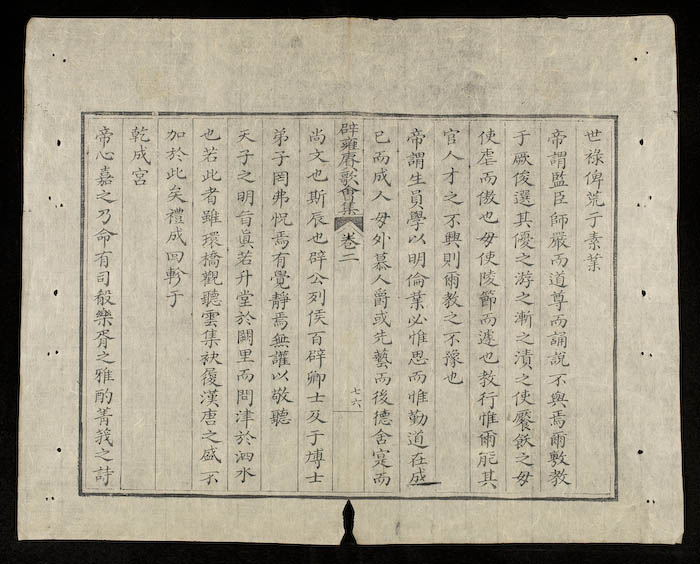 世祿俾荒于素業
帝謂監臣師嚴而道尊而誦說不與焉爾敷教
于厥俊選其優之游之漸之漬之使饜飫之毋
使虐而傲也毋使陵節而遽也教行惟爾能其
官人才之不興則爾教之不豫也
帝謂生員學以明倫業必惟思而惟勤道在成
已而成人毋外慕人爵或先藝而後德舍寔而
辟雍賡歌會集 卷二
七六
尚文也斯辰也辟公列侯百辟卿士及于博士
弟子罔弗怳焉有覺靜焉無讙以敬聽
天子之明旨眞若升堂於闕里而問津於泗水
也若此者雖環橋觀聽雲集袂屨漢唐之盛不
加於此矣禮成回軫于
乾成宮
帝心嘉之乃命有司殽樂胥之雅酌菁莪之詩